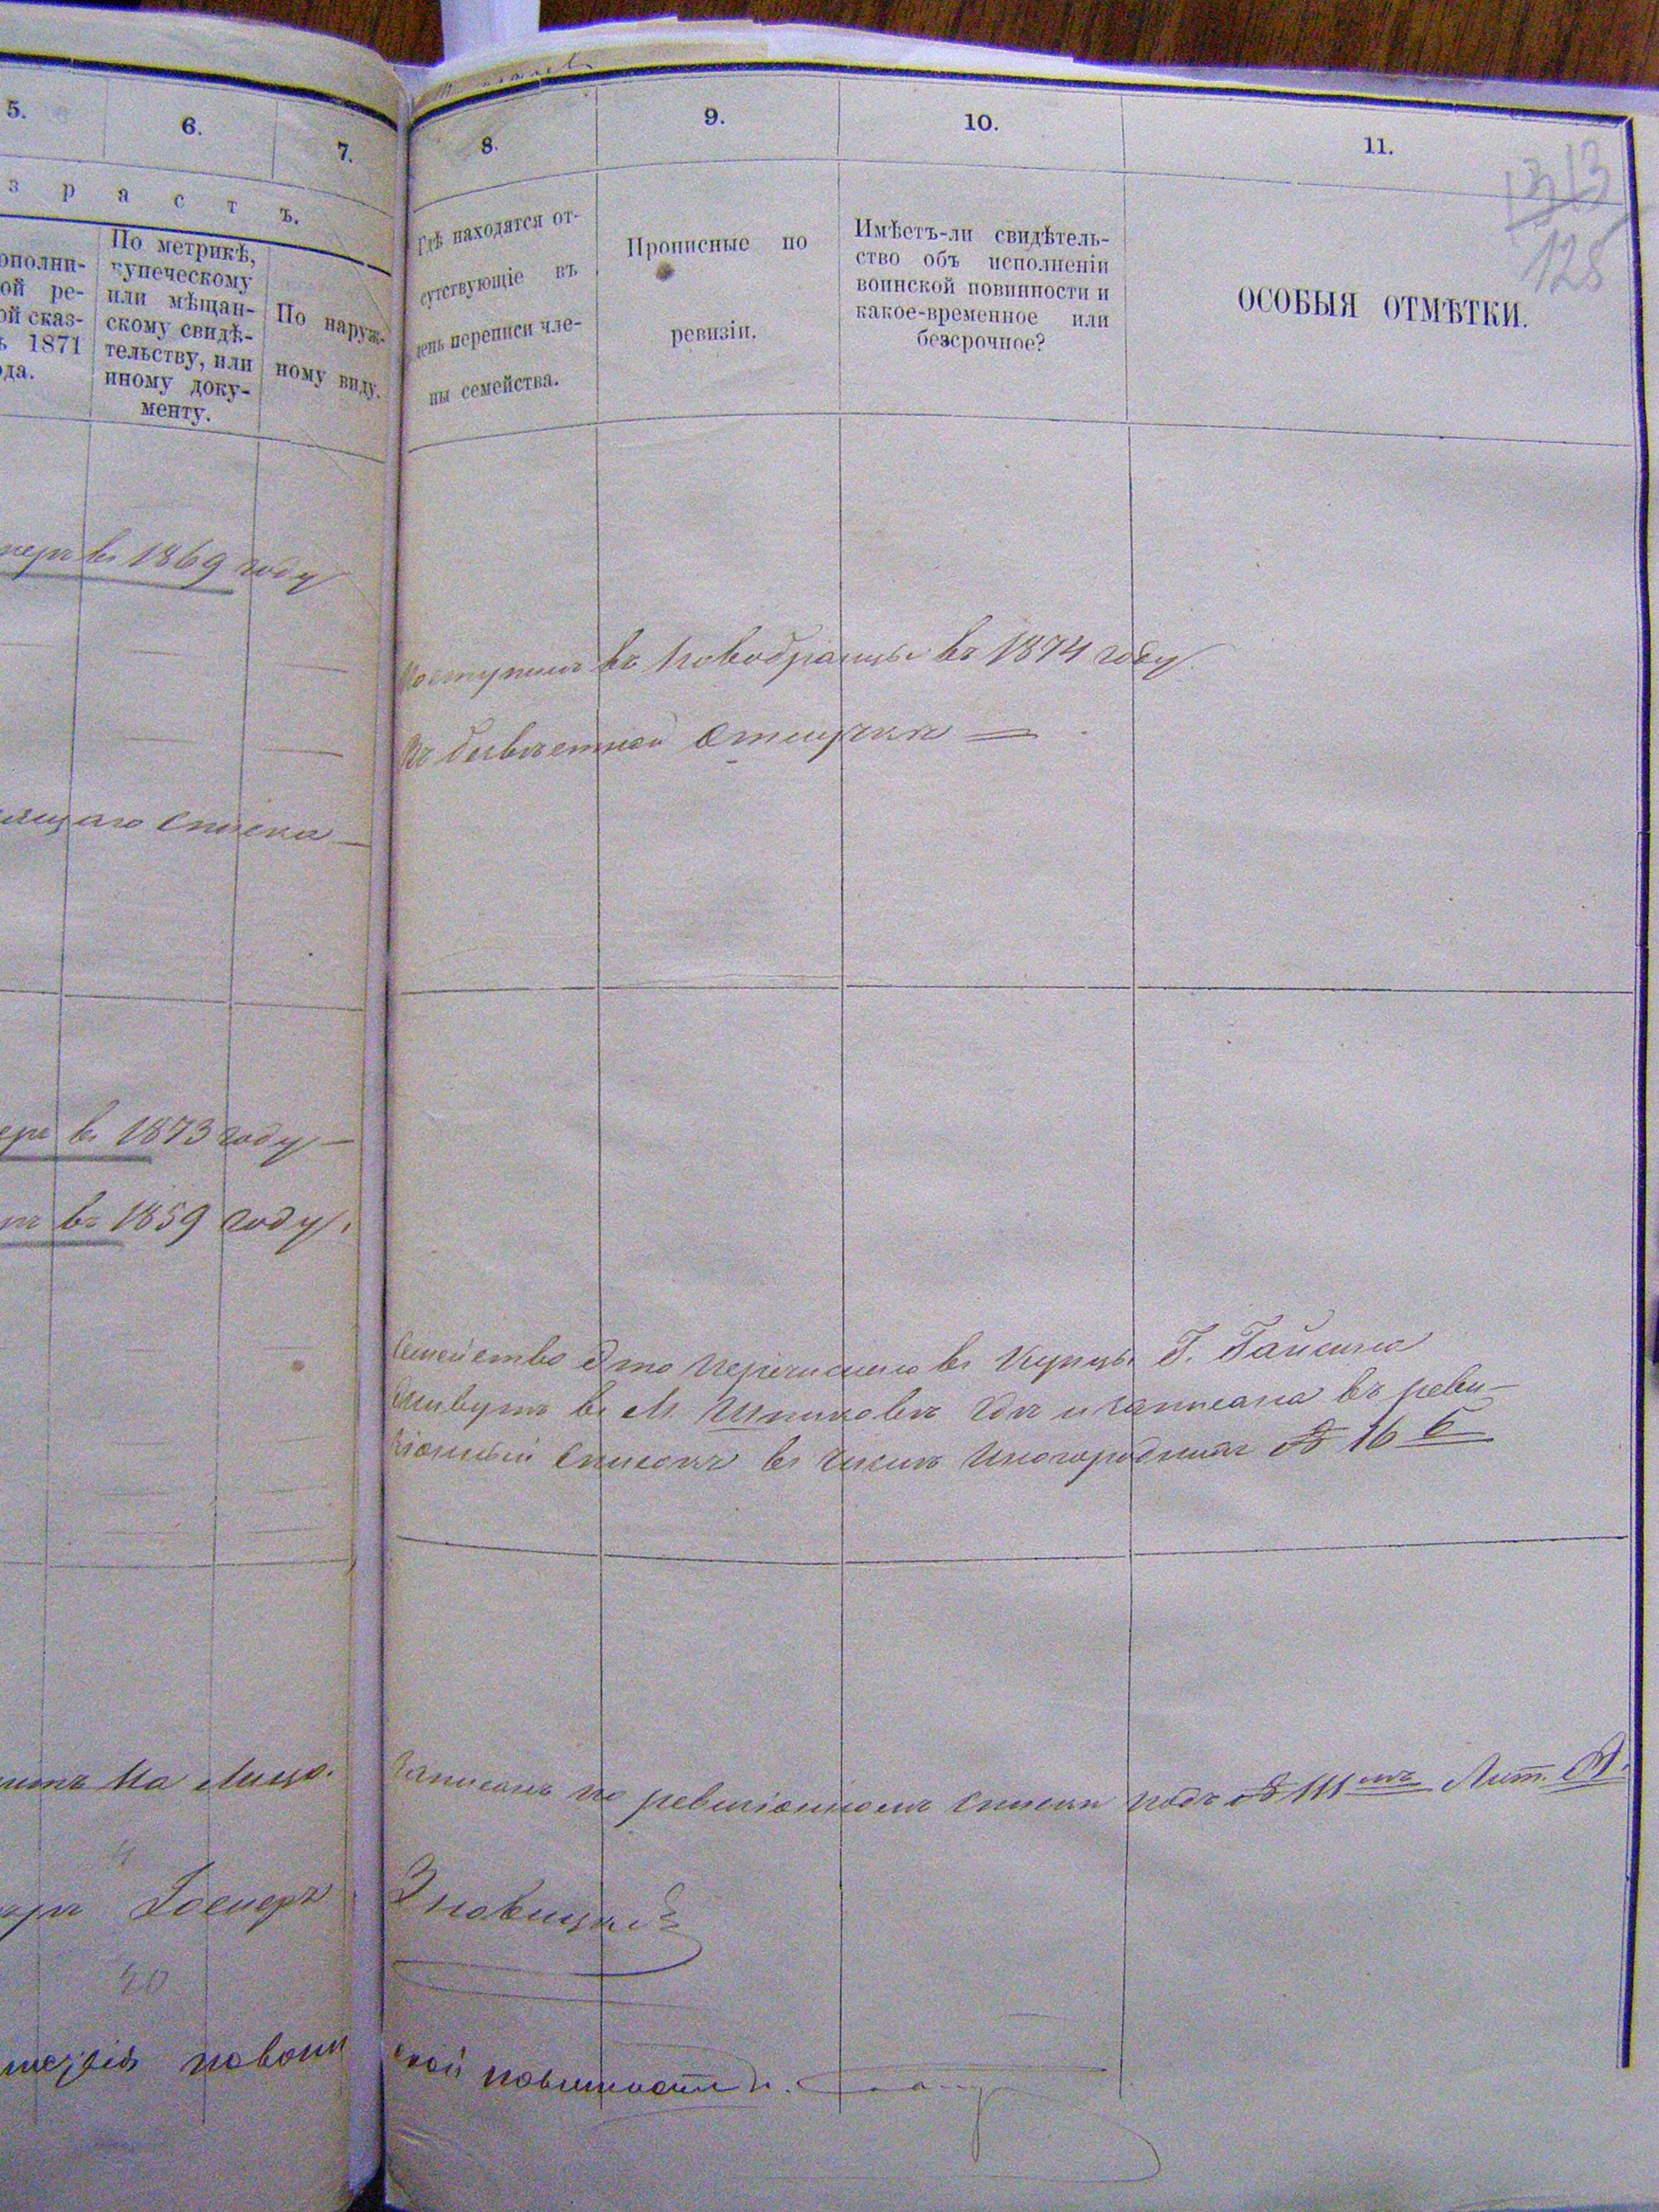 5.
6.
7.
з р а с т ъ.
ополни-
ой ре-
ой сказ-
ъ 1871
ода.
По метрикѣ,
купеческому
или мѣщан-
скому свидѣ-
тельству, или
иному доку-
менту.
По наруж-
ному виду.
8.
9.
10.
11.
Гдѣ находятся от-
сутствующіе въ
день переписи чле-
ны семейства.
Прописные по
ревизіи.
Имѣетъ-ли свидѣтель-
ство объ исполненіи
воинской повинности и
какое-временное или
безсрочное?
ОСОБЫЯ ОТМѢТКИ.
13
128
въ 1869 году
Поступилъ въ Новобранцы въ 1874 году
Въ безвѣстной отлучкѣ
ящаго списка
въ 1873 году
въ 1859 году
Семейство это перечислено въ Купцы Г. Гайсина
Живутъ въ М. гдѣ и записана въ реви-
зіонный списокъ въ числѣ иногороднихъ № 16 Б
на лицо.
Записанъ по ревизіонномъ списки подъ № 111мъ Лит. А.
Зновицкій
повин
ской повинности.